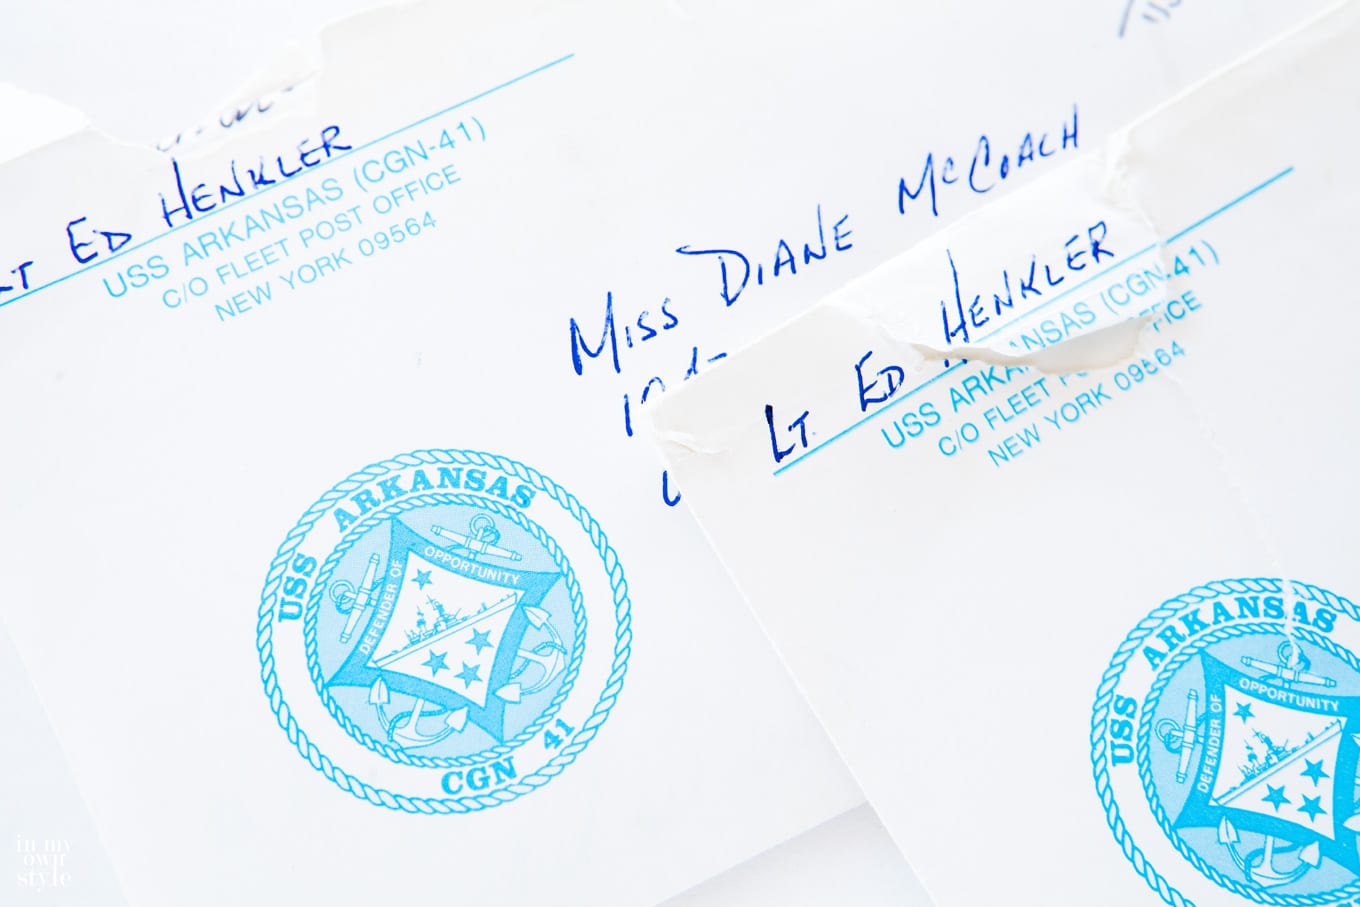 LT ED HENKLER
USS ARKANSAS (CGN-41)
C/O FLEET POST OFFICE
NEW YORK 09564
MISS DIANE McCOACH
USS ARKANSAS
DEFENDER OF OPPORTUNITY
CGN 41
LT. ED HENKLER
USS ARKANSAS (CGN-41)
C/O FLEET POST OFFICE
NEW YORK 09564
USS ARKANSAS
DEFENDER OF OPPORTUNITY
in my
own
style